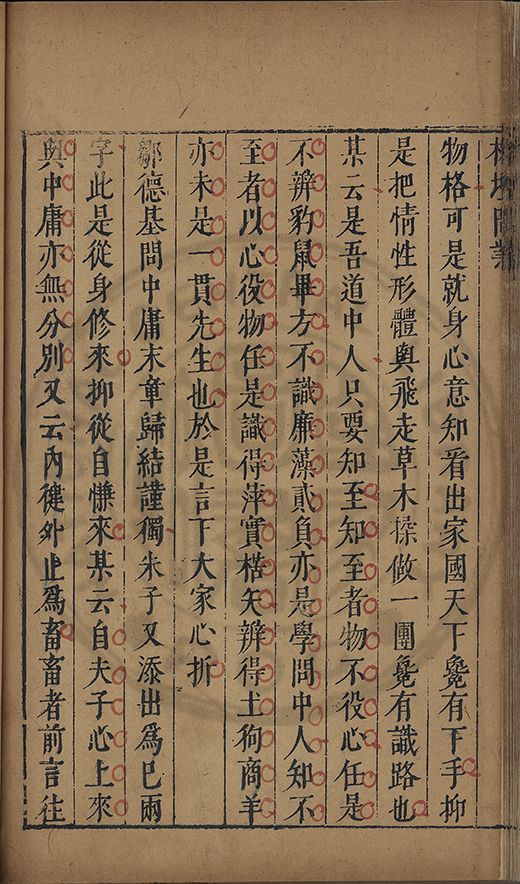 榕壇問業
物格可是就身心意知看出家國天下纔有下手抑
是把情性形體與飛走草木揉做一團纔有識路也
某云是吾道中人只要知至知至者物不役心任是
不辨豹鼠畢方不識廉藻貳負亦是學問中人知不
至者以心役物任是識得萍實楛矢辨得土狗商羊
亦未是一貫先生也於是言下大家心折
鄒德基問中庸末章歸結謹獨朱子又添出爲已兩
字此是從身修來抑從自慊來某云自夫子心上來
與中庸亦無分別又云內健外止爲畜畜者前言往